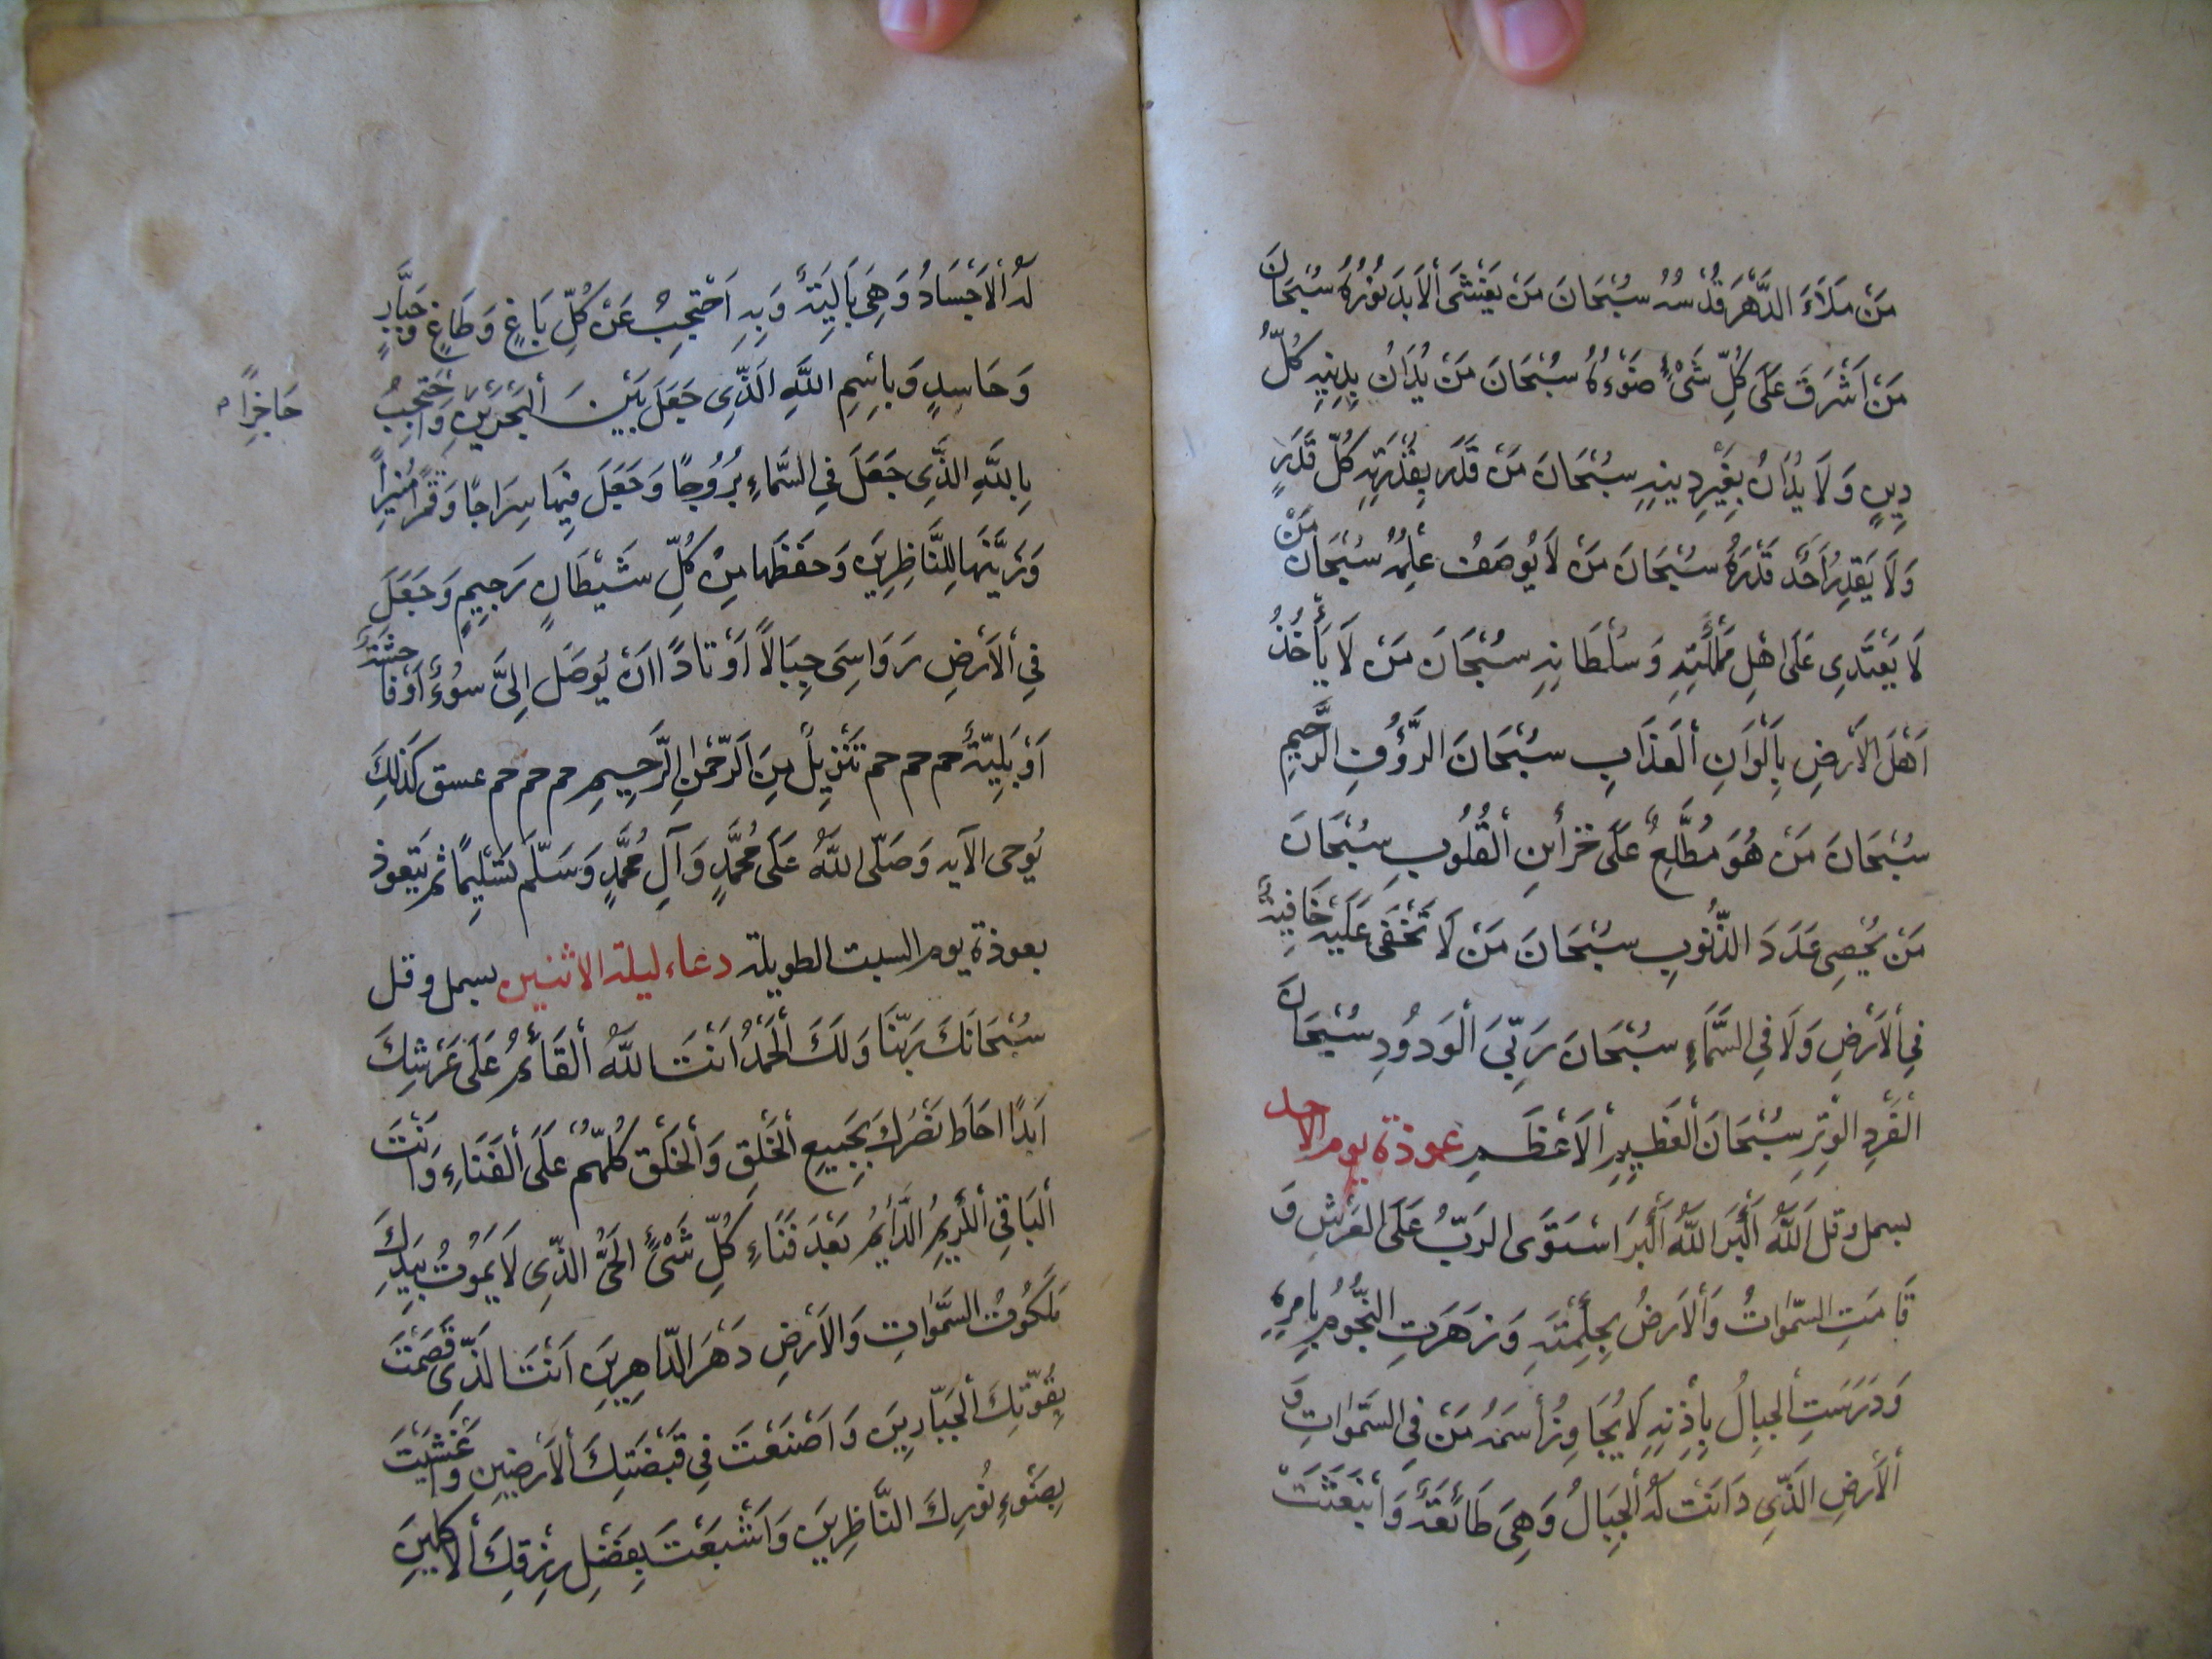 مَنْ مَلَاءَ الدَّهْرَ قُدْسُهُ سُبْحَانَ مَنْ يَغْشَى الْاَبَدَ نُورُهُ سُبْحَانَ
مَنْ اَشْرَقَ عَلَى كُلِّ شَىْءٍ ضَوْءُهُ سُبْحَانَ مَنْ يُدَانُ بِدِينِهِ كُلُّ
دِينٍ وَلَا يُدَانُ بِغَيْرِ دِينِهِ سُبْحَانَ مَنْ قَدَرَ بِقُدْرَتِهِ كُلَّ قَدَرٍ
وَلَا يَقْدِرُ اَحَدٌ قَدْرَهُ سُبْحَانَ مَنْ لَا يُوصَفُ عِلْمُهُ سُبْحَانَ مَنْ
لَا يَعْتَدِى عَلَى اَهْلِ مَمْلَكَتِهِ وَسُلْطَانِهِ سُبْحَانَ مَنْ لَا يَأْخُذُ
اَهْلَ الْاَرْضِ بِاَلْوَانِ الْعَذَابِ سُبْحَانَ الرَّؤُفِ الرَّحِيمِ
سُبْحَانَ مَنْ هُوَ مُطَّلِعٌ عَلَى خَزَائِنِ الْقُلُوبِ سُبْحَانَ
مَنْ يُحْصِى عَدَدَ الذُّنُوبِ سُبْحَانَ مَنْ لَا تَخْفَى عَلَيْهِ خَافِيَةٌ
فِى الْاَرْضِ وَلَا فِى السَّمَاءِ سُبْحَانَ رَبِّىَ الْوَدُودِ سُبْحَانَ
الْفَرْدِ الْوِتْرِ سُبْحَانَ الْعَظِيمِ الْاَعْظَمِ عوذة يوم الاحد
بسمل وقل اَللّٰهُ اَكْبَرُ اَللّٰهُ اَكْبَرُ اسْتَوَى الرَّبُّ عَلَى الْعَرْشِ وَ
قَامَتِ السَّمٰوَاتُ وَالْاَرْضُ بِحِكْمَتِهِ وَزَهَرَتِ النُّجُومُ بِاَمْرِهِ
وَرَسَتِ الْجِبَالُ بِاِذْنِهِ لَا يُجَاوِزُ اسْمَهُ مَنْ فِى السَّمٰوَاتِ وَ
الْاَرْضِ الَّذِى دَانَتْ لَهُ الْجِبَالُ وَهِىَ طَائِعَةٌ وَانْبَعَثَتْ
لَهُ الْاَجْسَادُ وَهِىَ بَالِيَةٌ وَبِهِ اَحْتَجِبُ عَنْ كُلِّ بَاغٍ وَطَاغٍ وَجَبَّارٍ
وَحَاسِدٍ وَبِاسْمِ اللّٰهِ الَّذِى جَعَلَ بَيْنَ الْبَحْرَيْنِ وَاَحْتَجِبُ
حَاجِزًا
بِاللّٰهِ الَّذِى جَعَلَ فِى السَّمَاءِ بُرُوجًا وَجَعَلَ فِيهَا سِرَاجًا وَقَمَرًا مُنِيرًا
وَزَيَّنَهَا لِلنَّاظِرِينَ وَحَفِظَهَا مِنْ كُلِّ شَيْطَانٍ رَجِيمٍ وَجَعَلَ
فِى الْاَرْضِ رَوَاسِىَ جِبَالًا اَوْتَادًا اَنْ يُوصَلَ اِلَىَّ سُوءٌ اَوْ فَاحِشَةٌ
اَوْ بَلِيَّةٌ حم حم حم تَنْزِيلٌ مِنَ الرَّحْمٰنِ الرَّحِيمِ حم حم حم عسق كَذٰلِكَ
يُوحى الآيه وَصَلَّى اللّٰهُ عَلَى مُحَمَّدٍ وَآلِ مُحَمَّدٍ وَسَلَّمَ تَسْلِيمًا ثم يتعوذ
بعوذة يوم السبت الطويلة دعاء ليلة الاثنين بسمل وقل
سُبْحَانَكَ رَبَّنَا وَلَكَ الْحَمْدُ اَنْتَ اللّٰهُ الْقَائِمُ عَلَى عَرْشِكَ
اَبَدًا اَحَاطَ بَصَرُكَ بِجَمِيعِ الْخَلْقِ وَالْخَلْقُ كُلُّهُمْ عَلَى الْفَنَاءِ وَاَنْتَ
الْبَاقِى الْكَرِيمُ الدَّائِمُ بَعْدَ فَنَاءِ كُلِّ شَىْءٍ الْحَىُّ الَّذِى لَا يَمُوتُ بِيَدِكَ
مَلَكُوتُ السَّمٰوَاتِ وَالْاَرْضِ دَهْرَ الدَّاهِرِينَ اَنْتَ الَّذِى قَصَمْتَ
بِقُوَّتِكَ الْجَبَّارِينَ وَاَضَفْتَ فِى قَبْضَتِكَ الْاَرَضِينَ وَاَغْشَيْتَ
بِضَوْءِ نُورِكَ النَّاظِرِينَ وَاَشْبَعْتَ بِفَضْلِ رِزْقِكَ الْاٰكِلِينَ